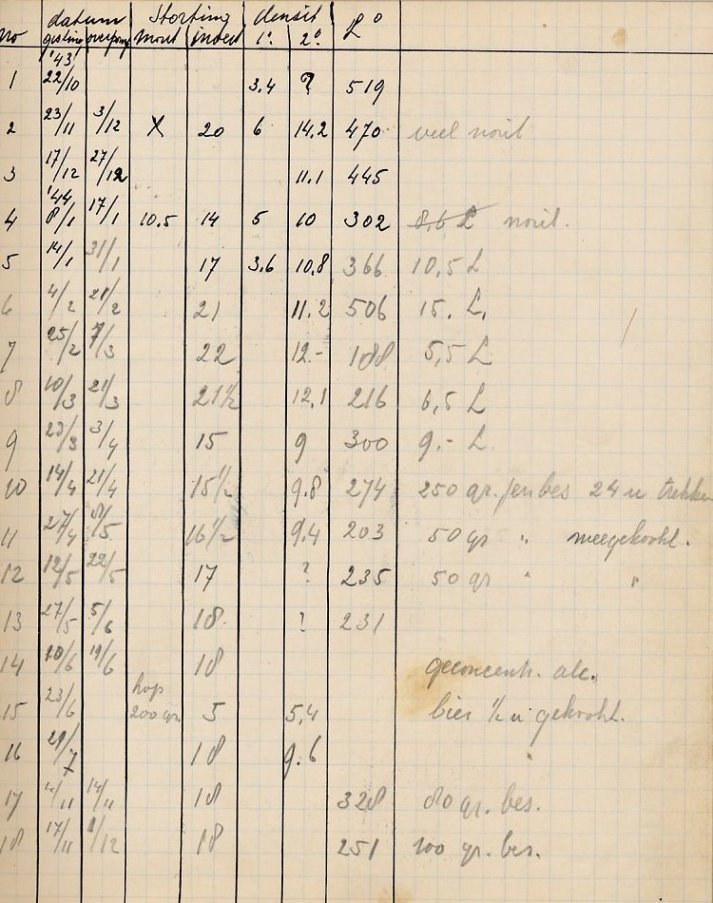 datum Storting densit L°
no gisting overgang mout invert 1° 2°
'43
1 22/10 3.4 ? 519
2 23/11 3/12 X 20 6 14.2 470 veel norit
3 17/12 27/12 11.1 445
'44
4 8/1 17/1 10.5 14 5 10 302 8,6 L norit.
5 14/1 31/1 17 3.6 10.8 366 10,5 L
6 4/2 21/2 21 11.2 506 15. L.
7 25/2 7/3 22 12.- 188 5,5 L
8 10/3 21/3 21½ 12,1 216 6,5 L
9 23/3 3/4 15 9 300 9.- L.
10 14/4 21/4 15½ 9.8 274 250 gr. jenbes 24 u trekken
11 27/4 8/5 16½ 9.4 203 50 gr " meegekookt.
12 12/5 22/5 17 ? 235 50 gr " "
13 27/5 5/6 18. ? 231
14 10/6 19/6 18 geconcentr. alc.
hop
15 23/6 200 gr. 5 5,4 bier ½ u gekookt.
16 29/7 18 9.6
17 4/11 14/11 18 328 80 gr. bes.
18 17/11 1/12 18 251 100 gr. bes.